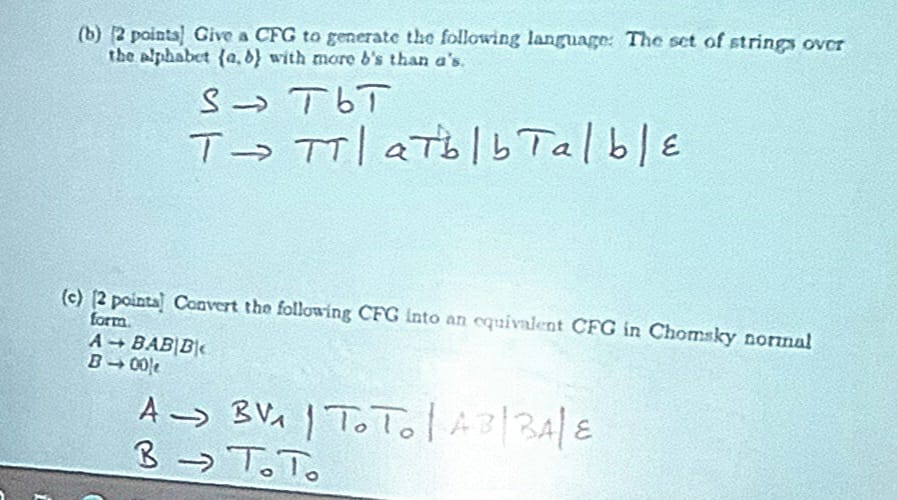 (b) [2 points] Give a CFG to generate the following language: The set of strings over
the alphabet {a, b} with more b's than a's.
S → TbT
T → TT | aTb | bTa | b | ε
(c) [2 points] Convert the following CFG into an equivalent CFG in Chomsky normal
form.
A → BAB|B|ϵ
B → 00|ϵ
A → BV₁ | T₀T₀ | AB | BA | ε
B → T₀T₀